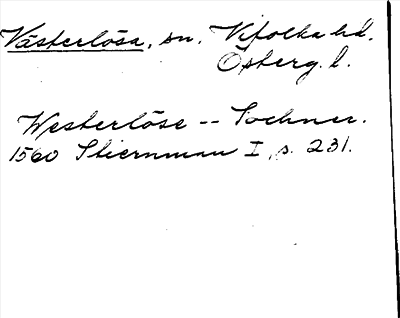 Västerlösa, sn. Vifolka hd.
Östergl.
Westerlöse -- Sochner.
1560 Stiernman I, s. 231.